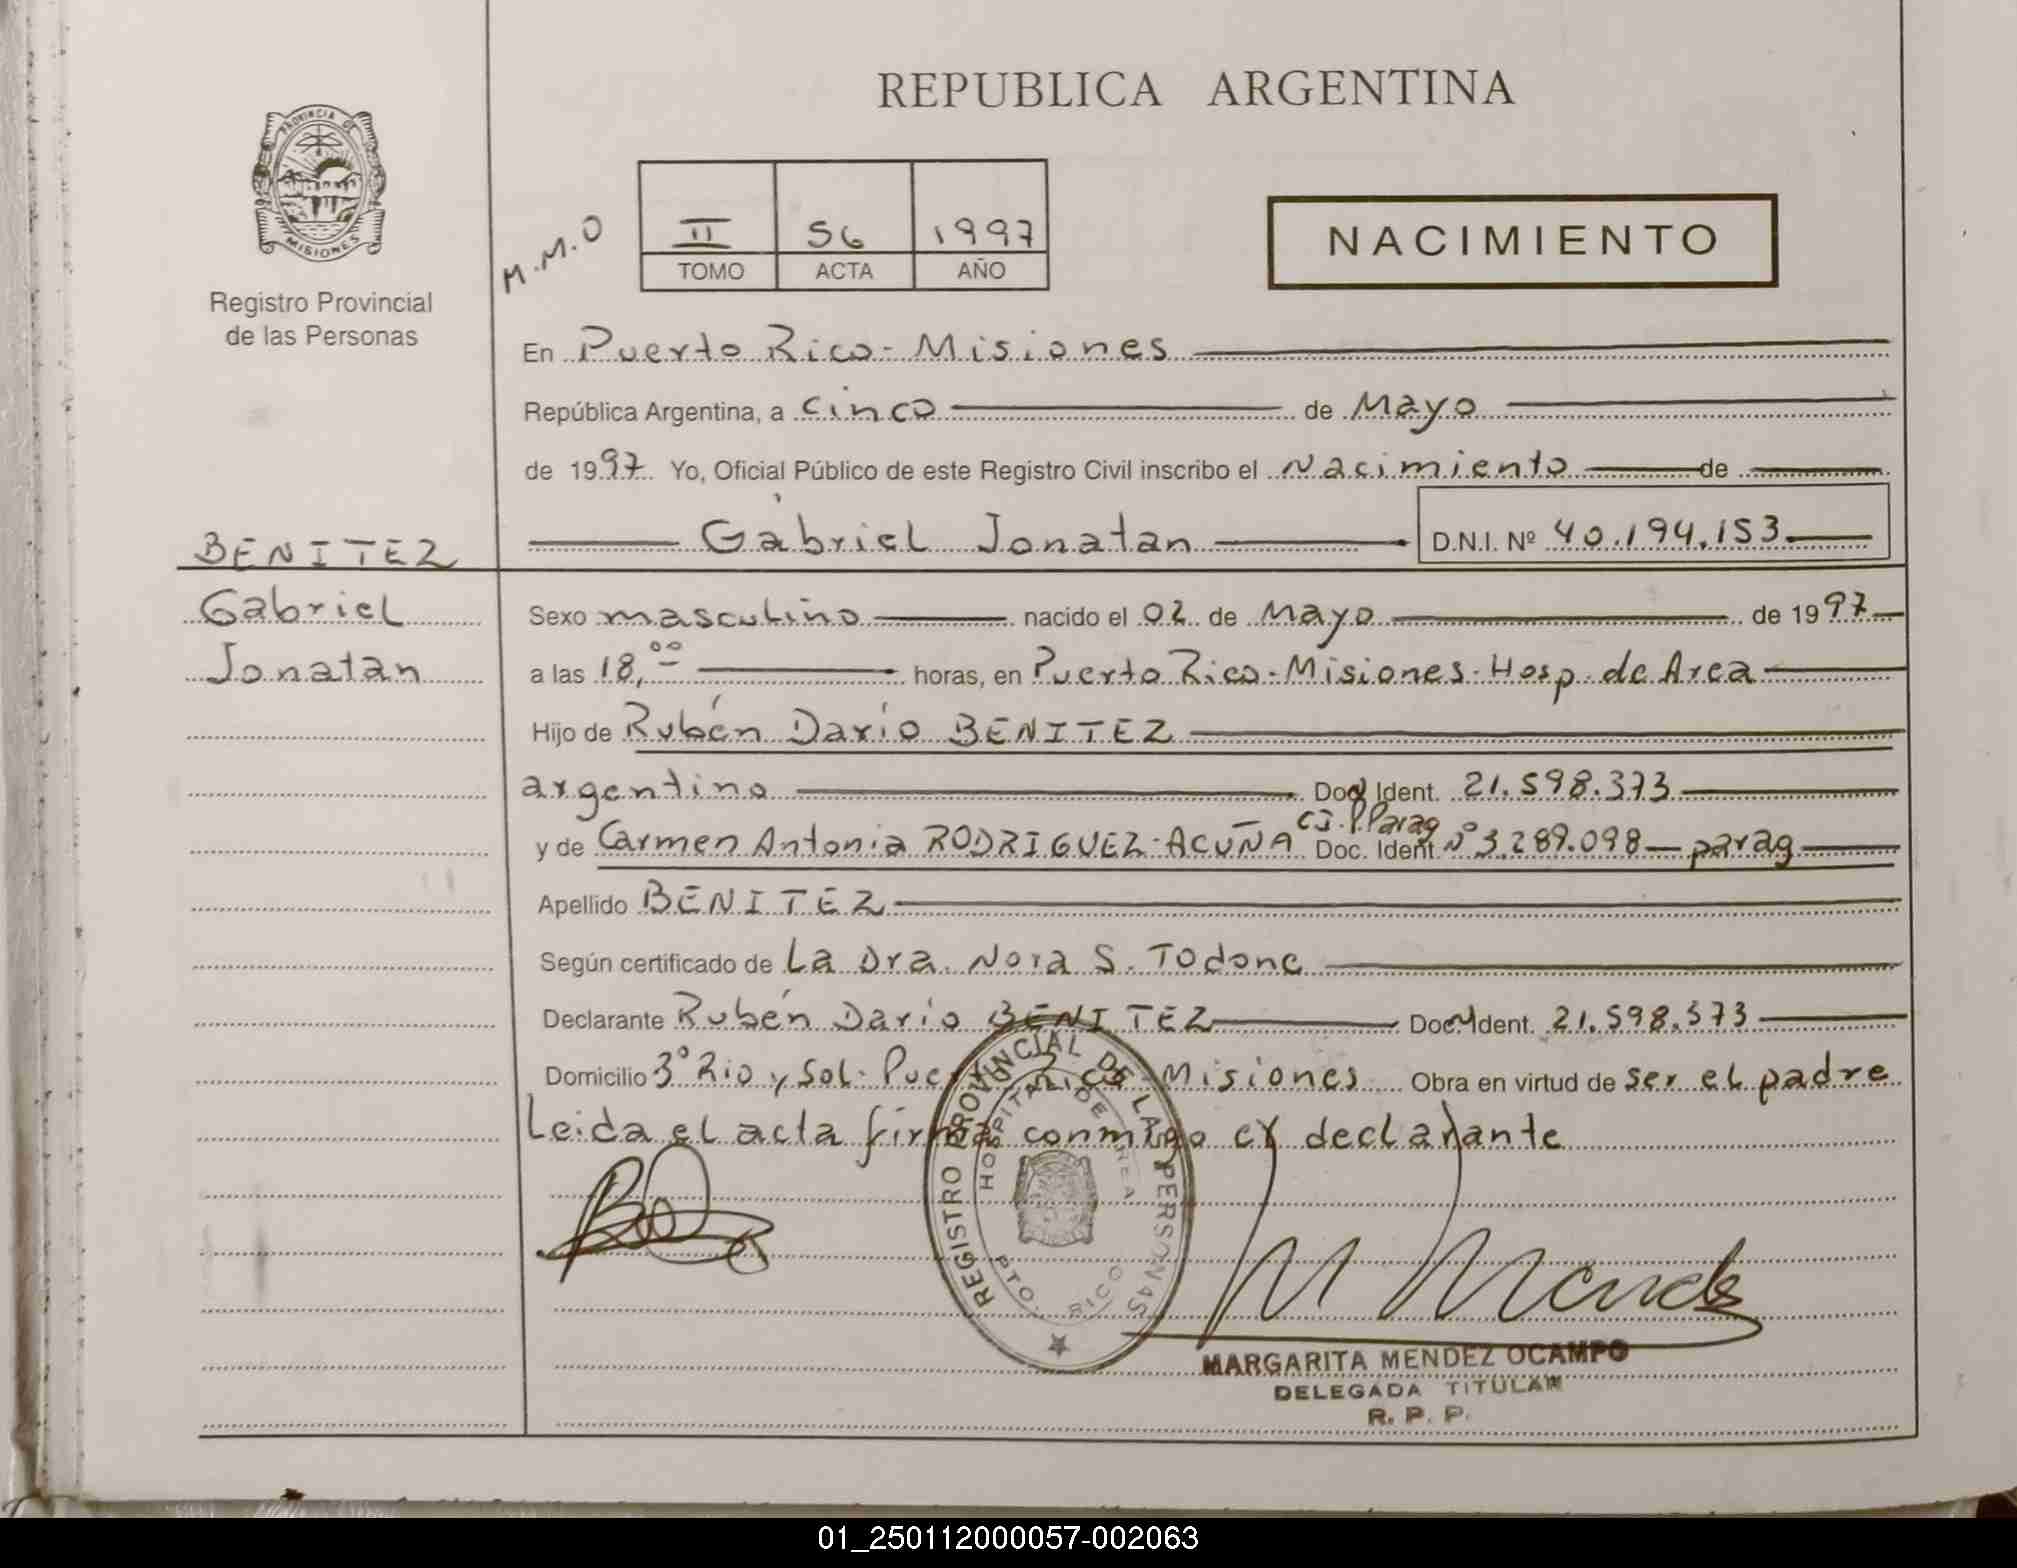 REPUBLICA ARGENTINA
PROVINCIA DE
MISIONES
Registro Provincial
de las Personas
M.M.O
II 56 1997
TOMO ACTA AÑO
NACIMIENTO
En Puerto Rico - Misiones
República Argentina, a cinco de Mayo
de 1997. Yo, Oficial Público de este Registro Civil inscribo el Nacimiento de
Gabriel Jonatan D.N.I. Nº 40.194.153
BENITEZ
Gabriel
Jonatan
Sexo masculino nacido el 02 de Mayo de 1997
a las 18,00 horas, en Puerto Rico - Misiones - Hosp. de Area
Hijo de Rubén Darío BENITEZ
argentino Doc. Ident. 21.598.373
y de Carmen Antonia RODRIGUEZ - ACUÑA Doc. Ident. CI.P.Parag Nº 3.289.098 - parag
Apellido BENITEZ
Según certificado de La Dra. Nora S. Todone
Declarante Rubén Darío BENITEZ Doc. Ident. 21.598.373
Domicilio 3º Rio y Sol - Puerto Rico - Misiones Obra en virtud de ser el padre
Leida el acta firma conmigo el declarante
REGISTRO PROVINCIAL DE LAS PERSONAS
HOSPITAL DE AREA
PTO. RICO
M Mendez
MARGARITA MENDEZ OCAMPO
DELEGADA TITULAR
R. P. P.
01_250112000057-002063